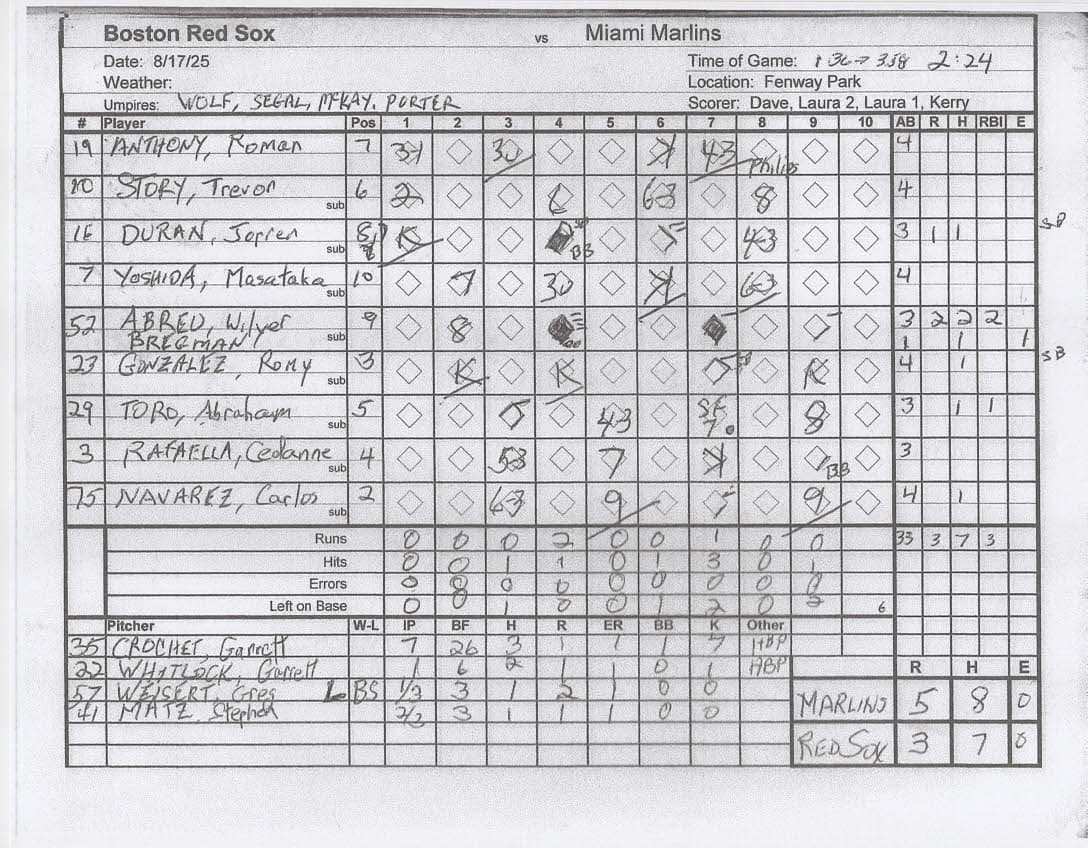 Boston Red Sox vs Miami Marlins
Date: 8/17/25 Time of Game: 136→358 2:24
Weather: Location: Fenway Park
Umpires: WOLF, SEGAL, McKAY, PORTER Scorer: Dave, Laura 2, Laura 1, Kerry
# Player Pos 1 2 3 4 5 6 7 8 9 10 AB R H RBI E
19 ANTHONY, Roman 7 30 43 4
Philips
10 STORY, Trevor 6 2 63 8 4
sub
16 DURAN, Jarren 8 K BB 43 3 1 1 SB
sub
7 YOSHIDA, Masataka 10 7 30 63 4
sub
52 ABREU, Wilyer 9 8 3 2 2 2
BREGMAN sub 1 1 1
23 GONZALEZ, Romy 3 K K K 4 1 SB
sub
29 TORO, Abraham 5 43 SF 7 8 3 1 1
sub
3 RAFAELLA, Cedanne 4 53 7 BB 3
sub
75 NAVAREZ, Carlos 2 63 9 9 4 1
sub
Runs 0 0 0 2 0 0 1 0 0 33 3 7 3
Hits 0 0 1 1 0 1 3 0 1
Errors 0 0 0 0 0 0 0 0
Left on Base 0 0 1 0 0 1 2 0 2 6
Pitcher W-L IP BF H R ER BB K Other
35 CROCHET, Garrett 7 26 3 1 1 1 7 HBP
22 WHITLOCK, Garrett 1 6 2 1 1 0 1 HBP
R H E
57 WEISERT, Greg L BS 1/3 3 1 2 1 0 0
MARLINS 5 8 0
41 MATZ, Stephen 2/3 3 1 1 1 0 0
RED SOX 3 7 0